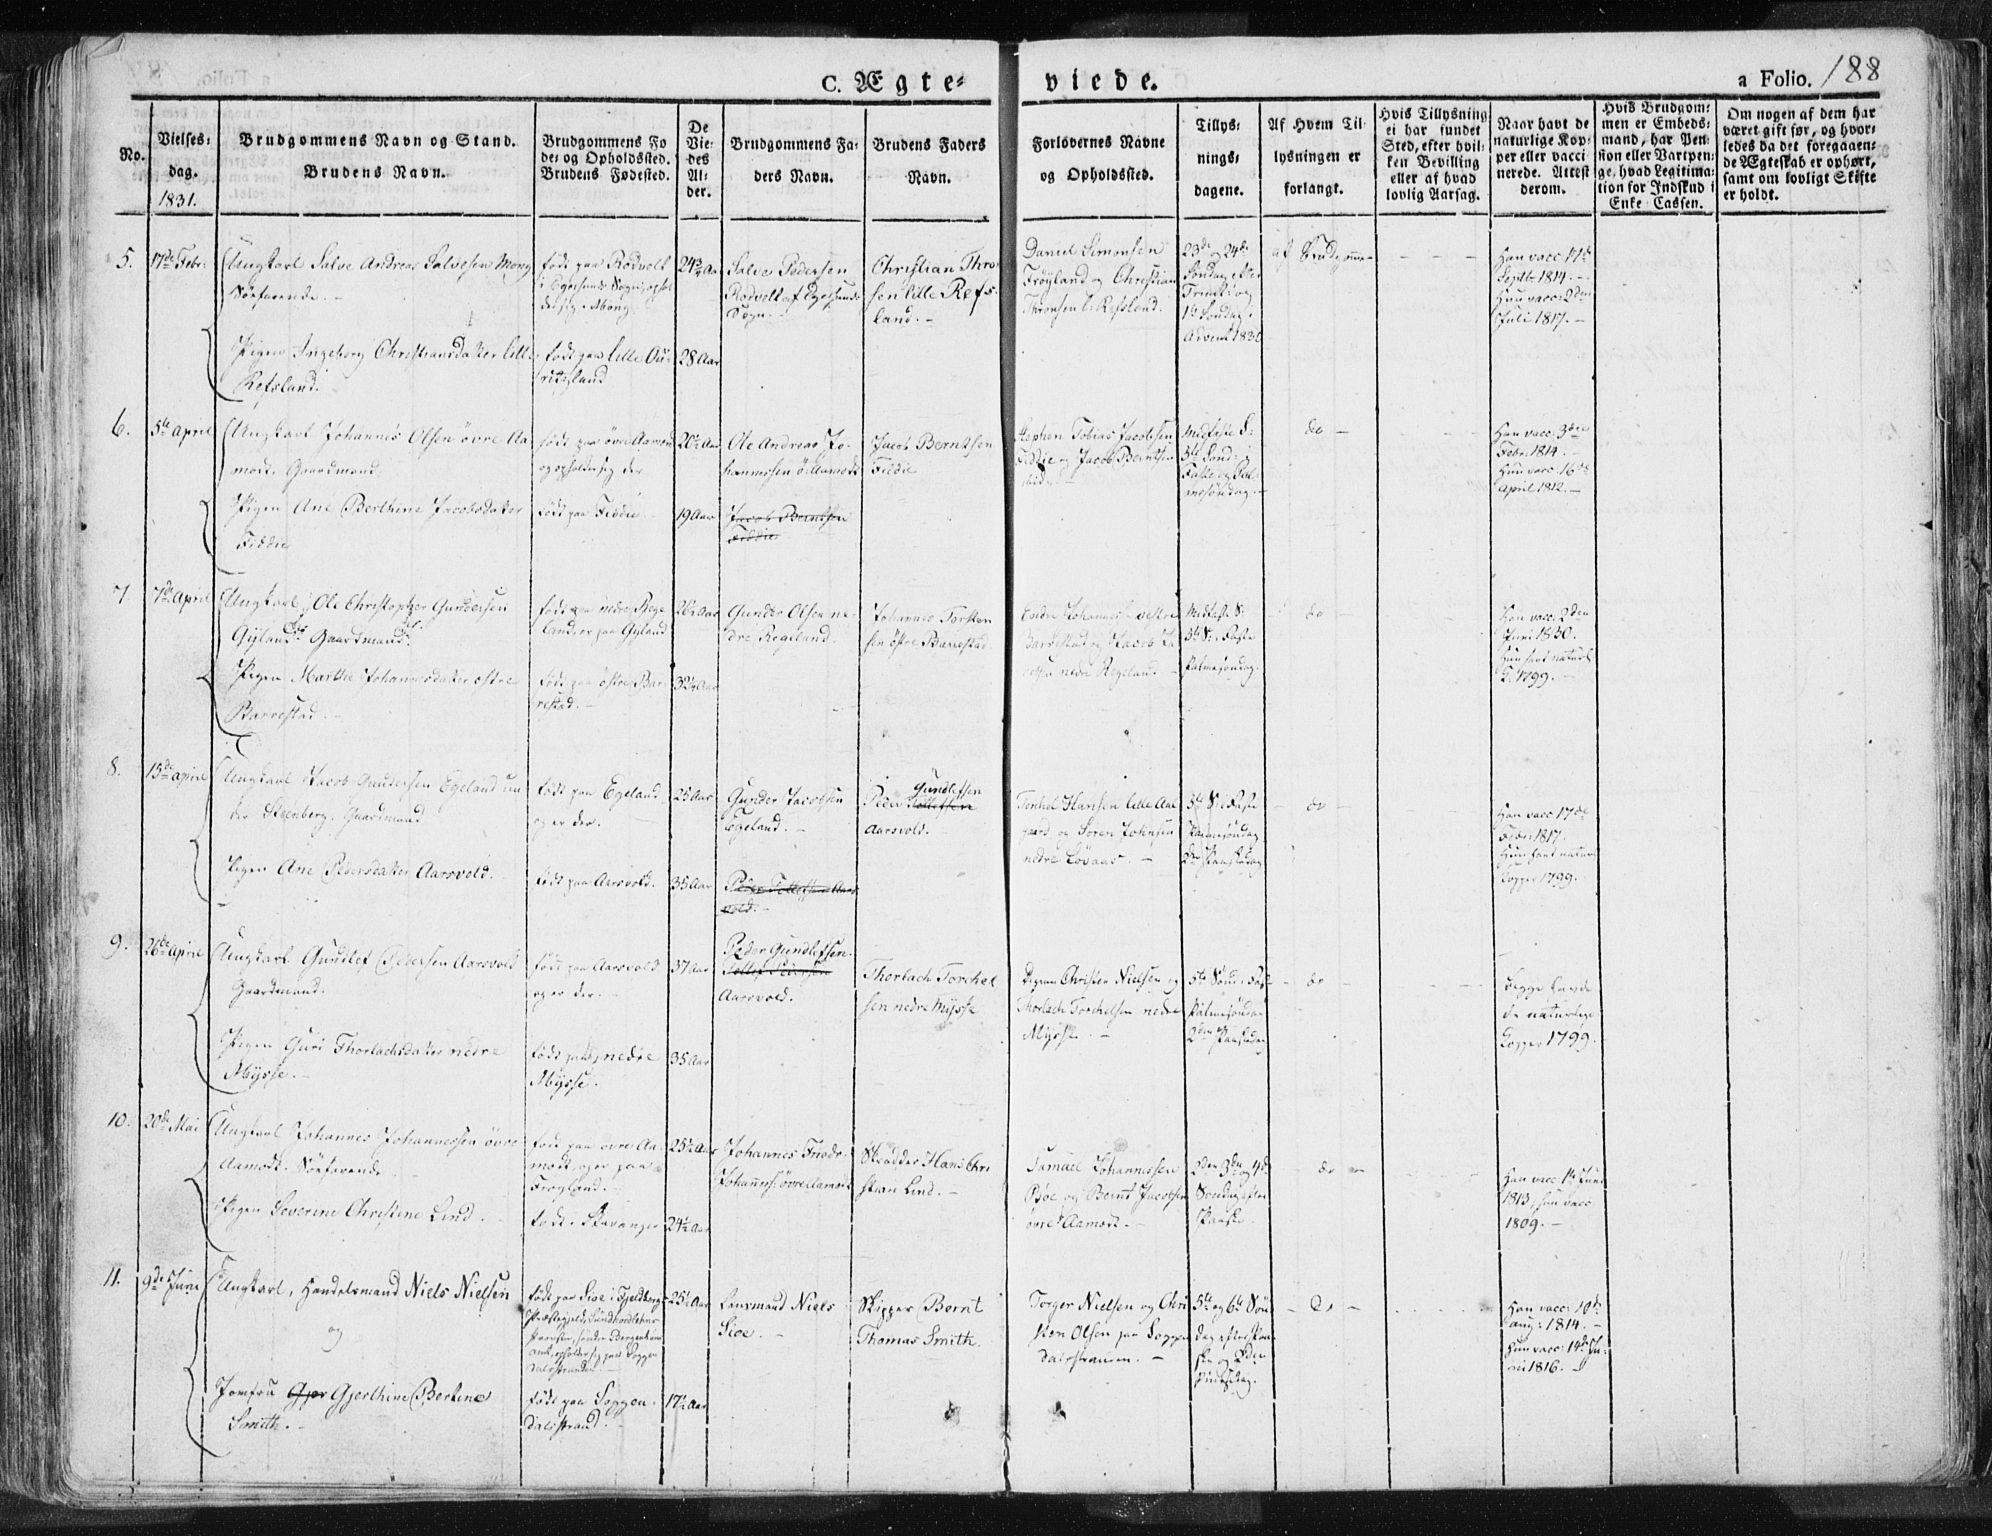 C. Ægte-
viede.
a Folio. 188
No.
Vielses-
dag.
1831.
Brudgommens Navn og Stand.
Brudens Navn.
Brudgommens Fø
de- og Opholdssted.
Brudens Fødested.
De
Vie-
des
Al-
der.
Brudgommens Fa-
ders Navn.
Brudens Faders
Navn.
Forlovernes Navne
og Opholdssted.
Tillys-
nings-
dagene.
Af Hvem Til-
lysningen er
forlangt.
Hvis Tillysning
ei har fundet
Sted, efter hvil-
ken Bevilling
eller af hvad
lovlig Aarsag.
Naar havt de
naturlige Kop-
per eller vacci
nerede. Attest
derom.
Hvis Brudgom-
men er Embeds-
mand, har Pen-
sion eller Vartpen-
ge, hvad Legitima-
tion for Indskud i
Enke Cassen.
Om nogen af dem har
været gift før, og hvor-
ledes da det foregaaen-
de Ægteskab er ophørt,
samt om lovligt Skifte
er holdt.
5.
17de Febr:
Ungkarl Salve Andreas Salvesen Mong
Søefarende. -
Pigen Ingeborg Christiansdatter lille
Refsland.
født paa Rodvelt
i Egersunds Sogn, ophol
der sig i Mong.
født paa lille
24 3/4 Aar
28 Aar
Salve Pedersen
Rodvelt af Egersunds
Sogn. -
Christian Thor
sen lille Refs-
land. -
Daniel Simonsen
Frøyland og Christian
Thronsen l: Refsland.
23de og 24de
Søndag efter
Trinit: og
1te Søndag i
Advent 1830
af Brudgommen
Han vacc 17de
Septbr 1814. -
Hun vacc: 2den
Juli 1817. -
6.
5te April
Ungkarl Johannes Olsen øvre Aa
modt. Gaardmand
Pigen Ane Berthine Jacobsdatter
Fidie
født paa øvre Aamodt
og opholder sig der
født paa Fidie. -
20 1/2 Aar
19 Aar
Ole Andreas Jo-
hannessen ø: Aamodt
Jacob Berntsen
Jacob Berntsen
Fidie
Stephen Tobias Jacobsen
Fidie og Jacob Berntsen
ibid. -
Midfaste S:
5te Sønd: i
Faste og Pal-
mesøndag. -
do -
Han vacc: 3die
Febr: 1814. -
Hun vacc: 16de
April 1812. -
7
7de April
Ungkarl Ole Christopher Gundersen
Gyland Gaardmand
Pigen Marthe Johannesdatter østre
Barrestad. -
født paa nedre Rege
land, er paa Gyland
født paa østre Bar-
restad. -
26 1/2 Aar
32 1/2 Aar
Gunder Olsen ne-
dre Regeland.
Johannes Torsten
sen østre Barrestad
Endre Johannes: vestre
Barrestad og Jacob Ja
cobsen nedre Regeland -
Midfaste S:
5te S: i Faste
Palmesøndag.
do
Han vacc: 2den
Juni 1830.
Hun havt naturl:
K: 1799. -
8.
15de April
Ungkarl Jacob Gundersen Egeland un
der Steenberg. Gaardmand
Pigen Ane Pedersdatter Aarsvold. -
født paa Egeland
og er der.
født paa Aarsvold.
25 Aar
35 Aar
Gunder Jacobsen
Egeland. -
Peder Tollefsen Aars
vold. -
Gundlefsen
Peder Tollefsen
Aarsvold. -
Torkel Hansen lille Aal
gaard og Søren Johnsen
nedre Løvaas. -
5te S: i Faste
Palmesøndag
2den Paaskedag
- do -
Han vacc 17de
Febr: 1817.
Hun havt naturl
Kopper 1799. -
9.
26de April
Ungkarl Gundlef Pedersen Aarsvold
Gaardmand.
Pigen Guri Thorlachsdatter nedre
Mysse. -
født paa Aarsvold
og er der. -
født paa nedre
Mysse.
37 Aar
35 Aar
Peder Gundlefsen.
Tollef Pedersen
Aarsvold.
Thorlach Torchel
sen nedre Mysse
Degnen Christer Nielsen og
Thorlach Torchelsen nedre
Mysse. -
5te Sønd: i Fas-
Palmesøndag
2den Paaskedag
- do -
Begge havde
de naturlige
Kopper 1799.
10.
20de Mai
Ungkarl Johannes Johannessen øvre
Aamodt. Søefarende
Pigen Severine Christine Lind. -
født paa øvre Aa-
modt, og er paa
Frøyland. -
født i Stavanger
25 1/2 Aar
24 1/2 Aar
Johannes Friedr:
Johanness: øvre Aamodt
Skrædder Hans Chri
stian Lind. -
Samuel Johannessen
Bøe og Bernt Jacobsen
øvre Aamodt. -
2den 3die og 4de
Søndag efter
Paaske.
- do -
Han vacc: 1te Juni
1813, hun vacc
1809. -
11.
9de Juni
Ungkarl, Handelsmand Niels Nielsen
og
Jomfru Gjer Gjerthine Bertine
Smith. -
født paa Sioe i Fjeldbergs
Præstegjeld, Sundhordlehns
Provstie, søndre Bergenhuus
Amt, opholder sig paa Soggen
dalsstranden. -
født paa Soggen-
dalsstrand. -
25 1/2 Aar
17 1/2 Aar
Lensmand Niels
Sioe. -
Skipper Bernt
Thomas Smith.
Torger Nielsen og Chri
sten Olsen paa Soggen
dalsstranden. -
5te og 6te Søn
dag efter Paa-
ske og 2den
Pintsedag.
- do -
Han vacc: 10de
Aug: 1814. -
Hun vacc: 14de Ju-
ni 1816. -